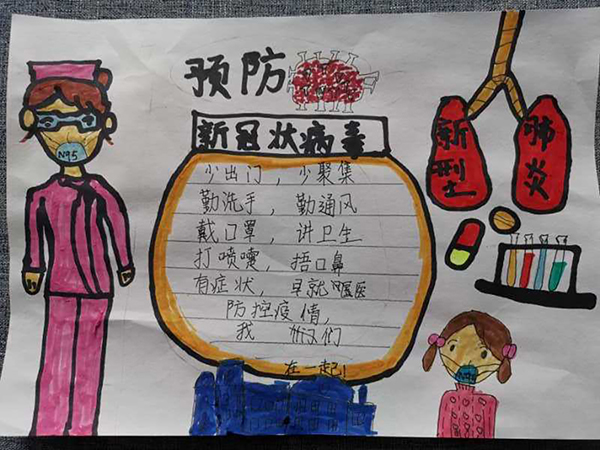 预防
新冠状病毒
N95
少出门，少聚集
勤洗手，勤通风
戴口罩，讲卫生
打喷嚏，捂口鼻
有症状，早就医
防控疫情，
我们
在一起！
新型
肺炎